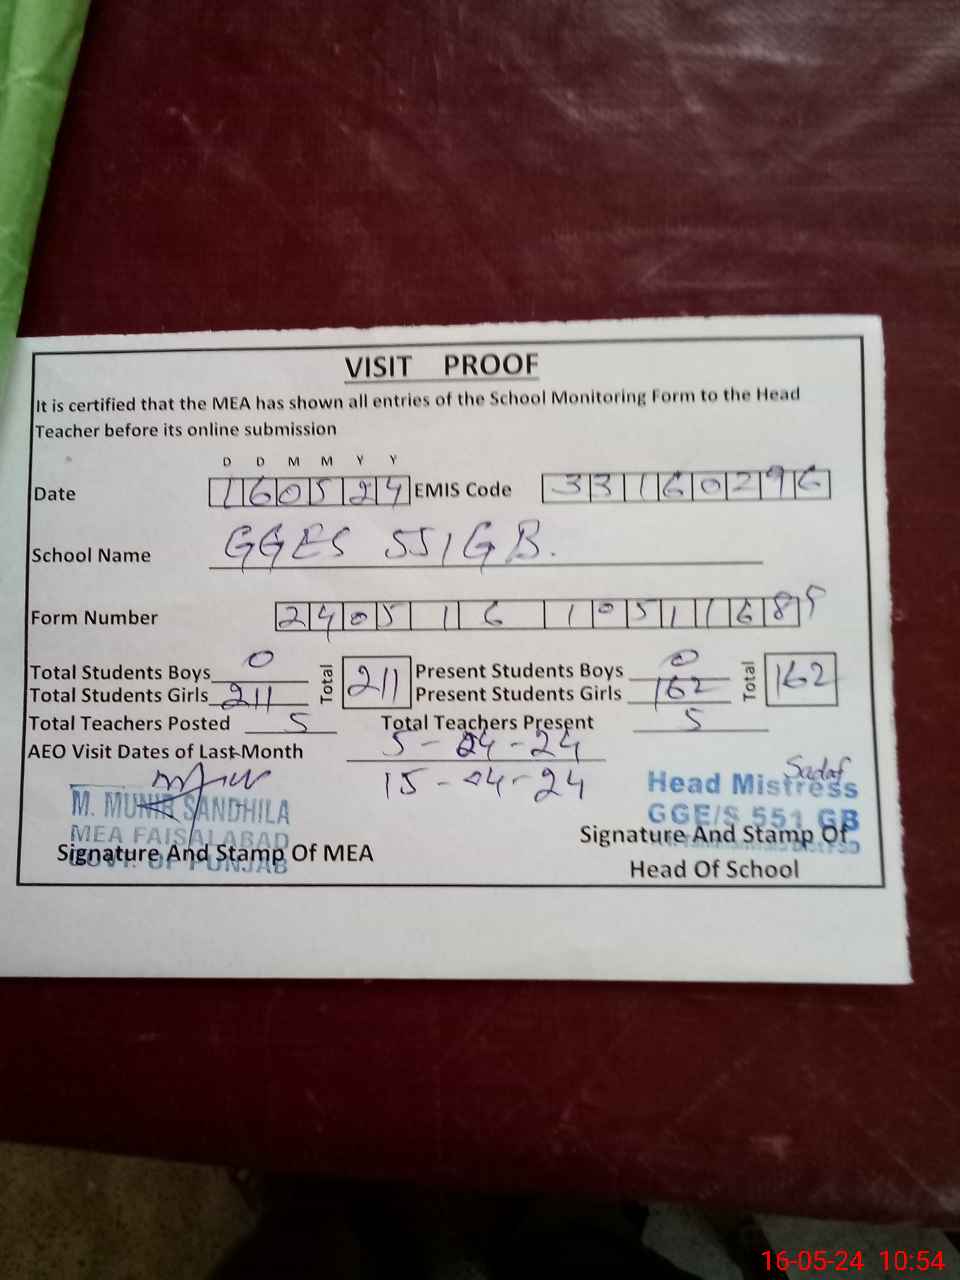 VISIT PROOF
It is certified that the MEA has shown all entries of the School Monitoring Form to the Head
Teacher before its online submission
D D M M Y Y
Date 160524 EMIS Code 33160296
School Name GGES 551 GB.
Form Number 2405 16 105116 8 9
Total Students Boys 0 Total 211 Present Students Boys 0 Total 162
Total Students Girls 211 Present Students Girls 162
Total Teachers Posted 5 Total Teachers Present 5
AEO Visit Dates of Last Month 5-04-24
15-04-24
Sadaf
M. MUNIR SANDHILA Head Mistress
MEA FAISALABAD GGE/S 551 GB
GOVT. OF PUNJAB
Signature And Stamp Of MEA Signature And Stamp Of
Head Of School
16-05-24 10:54